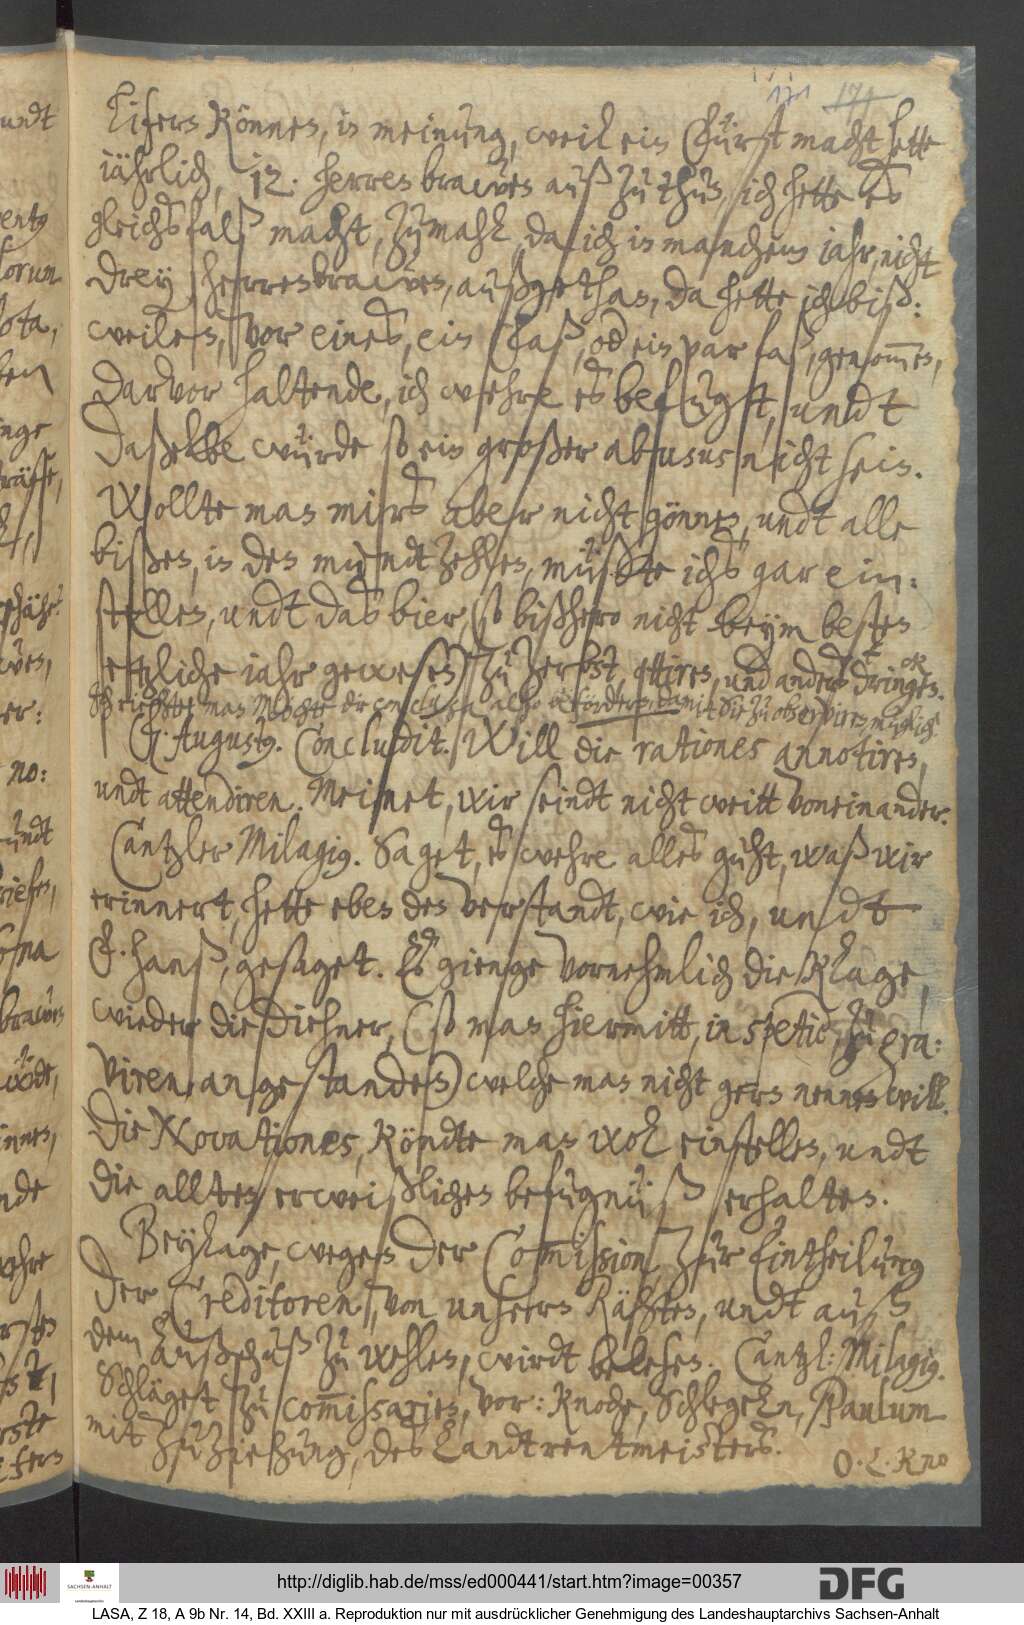 171 174
liefern können, in meinung, weil ein Fürst macht hette
iährlich, 12. herren brawen auß zu thun, ich hette es
gleichsfalß macht, zumahl, da ich in manchem iahr, nicht
drey, herrenbrawen, außgethan, da hette ich biß:
weilen, vor eines, ein Faß, od ein par faß, genom̄en,
darvor haltende, ich wehre es befugt, undt
daßelbe würde so ein großer abusus nicht sein.
Wollte man mirs aber nicht gönnen, undt alle
bißen, in den mundt zehlen, müßte ichs gar ein:
stellen, undt das bier, (so bißhero nicht beym besten
etzliche iahr gewesen) zu Zerbst, ettiren, und anders dringken.
Ich riehtte man Möchte die conclusa also befördern, damit Sie zu observiren müglich.
F. Augustg. Concludit. Will die rationes annotiren,
undt attendiren. Meinet, wir seindt nicht weitt voneinander.
Cantzler Milagig. Saget, es wehre alles guht, waß wir
erinnert, hette eben den verstandt, wie ich, undt
F. Hanß, gesaget. Es gienge vornehmlich die Klage,
wieder die Diehner, (so man hiermitt, in spetie, zu gra:
viren, angestanden) welche man nicht gern nennen will.
Die Novationes, köndte man wol einstellen, undt
die allten erweißlichen befugnüß erhalten.
Beylage, wegen der Com̄ission, zur Eintheilung
der Creditoren, von unsern Rähten, undt auß
dem Außschuß zu wehlen, wirdt belesen. Cantzl: Milagig.
Schläget zu com̄issarien, vor: Knoche, Schlegeln, Paulum
mit zuziehung, des Landtrentmeisters.
O. L. Kno
http://diglib.hab.de/mss/ed000441/start.htm?image=00357
DFG
SACHSEN-ANHALT
LASA, Z 18, A 9b Nr. 14, Bd. XXIII a. Reproduktion nur mit ausdrücklicher Genehmigung des Landeshauptarchivs Sachsen-Anhalt